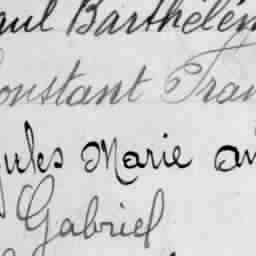 aul Barthélem
onstant Fran
ules Marie au
Gabriel